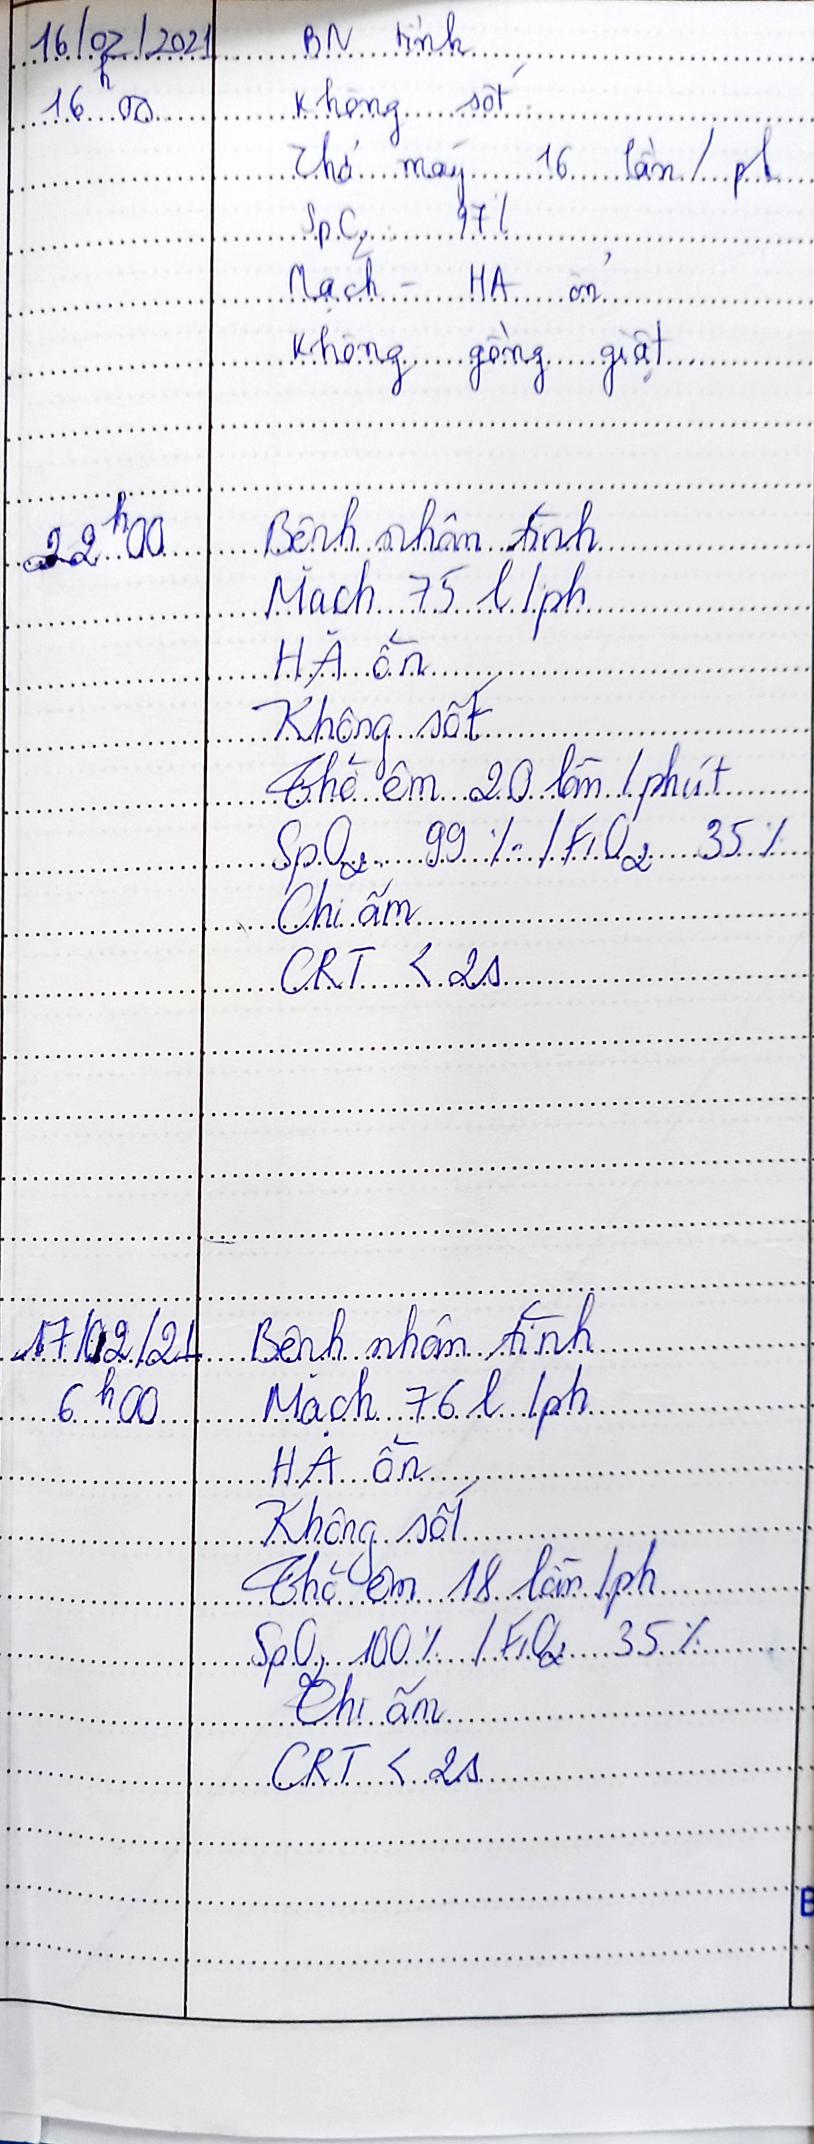 16/02/2021 BN tỉnh
16h00 Không sốt
Thở máy 16 lần/ph
SpO2 97%
Mạch - HA ổn
Không gồng giật
22h00 Bệnh nhân tỉnh
Mạch 75 l/ph
HA ổn
Không sốt
Thở êm 20 lần/phút
SpO2 99% / FiO2 35%
Chi ấm
CRT < 2s
17/02/21 Bệnh nhân tỉnh
6h00 Mạch 76 l/ph
HA ổn
Không sốt
Thở êm 18 lần/ph
SpO2 100% / FiO2 35%
Chi ấm
CRT < 2s
B